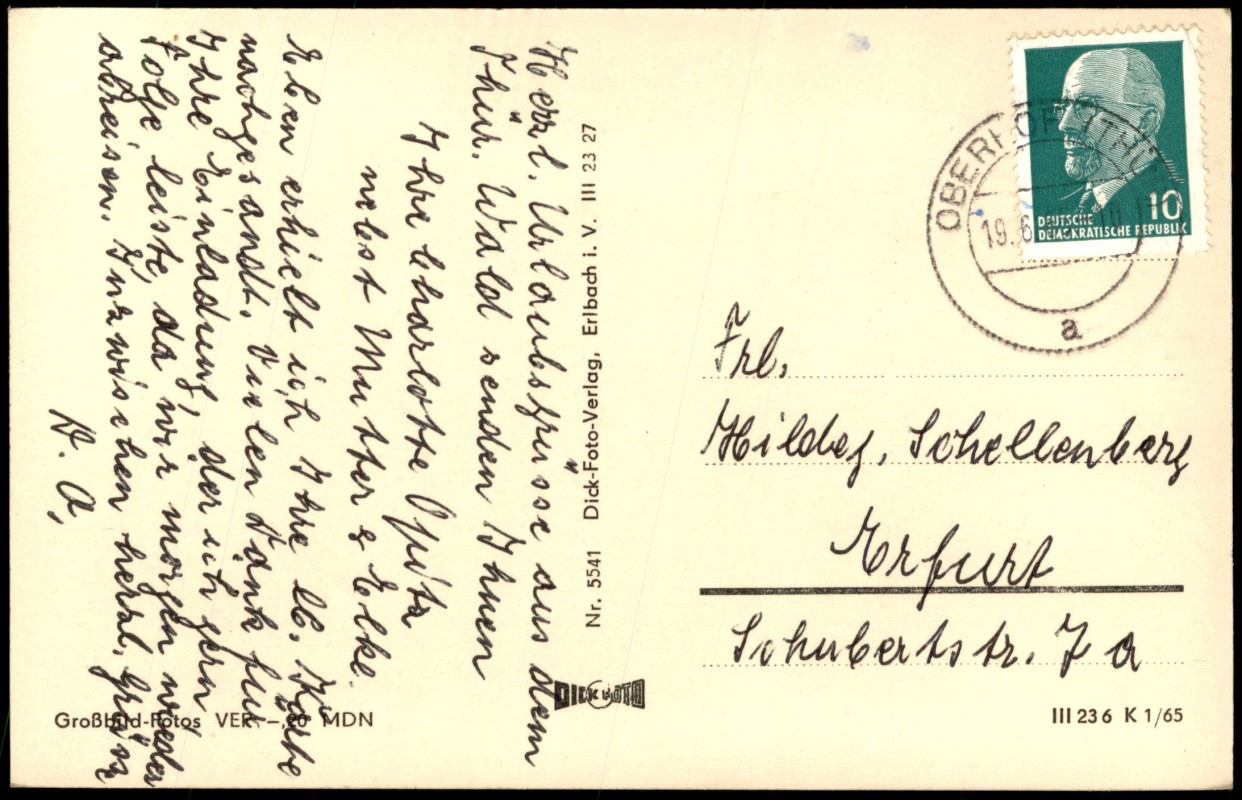 Herzl. Urlaubsgrüsse aus dem
Thür. Wald senden Ihnen
Ihre Charlotte Opitz
nebst Mutter & Elke.
Eben erhielt ich Ihre lb. Karte
nachgesandt. Vielen Dank für
Ihre Einladung, der ich gern
Folge leiste, da wir morgen wieder
abreisen. Inzwischen herzl. Grüsse
D. O.
Großbild-Fotos VER -,20 MDN
Nr. 5541 Dick-Foto-Verlag, Erlbach i. V. III 23 27
DICK FOTO
DEUTSCHE
DEMOKRATISCHE REPUBLIK
10
OBERHOF (THÜ
19.6
a
Frl.
Hildeg. Schellenberg
Erfurt
Schubertstr. 7 a
III 23 6 K 1/65